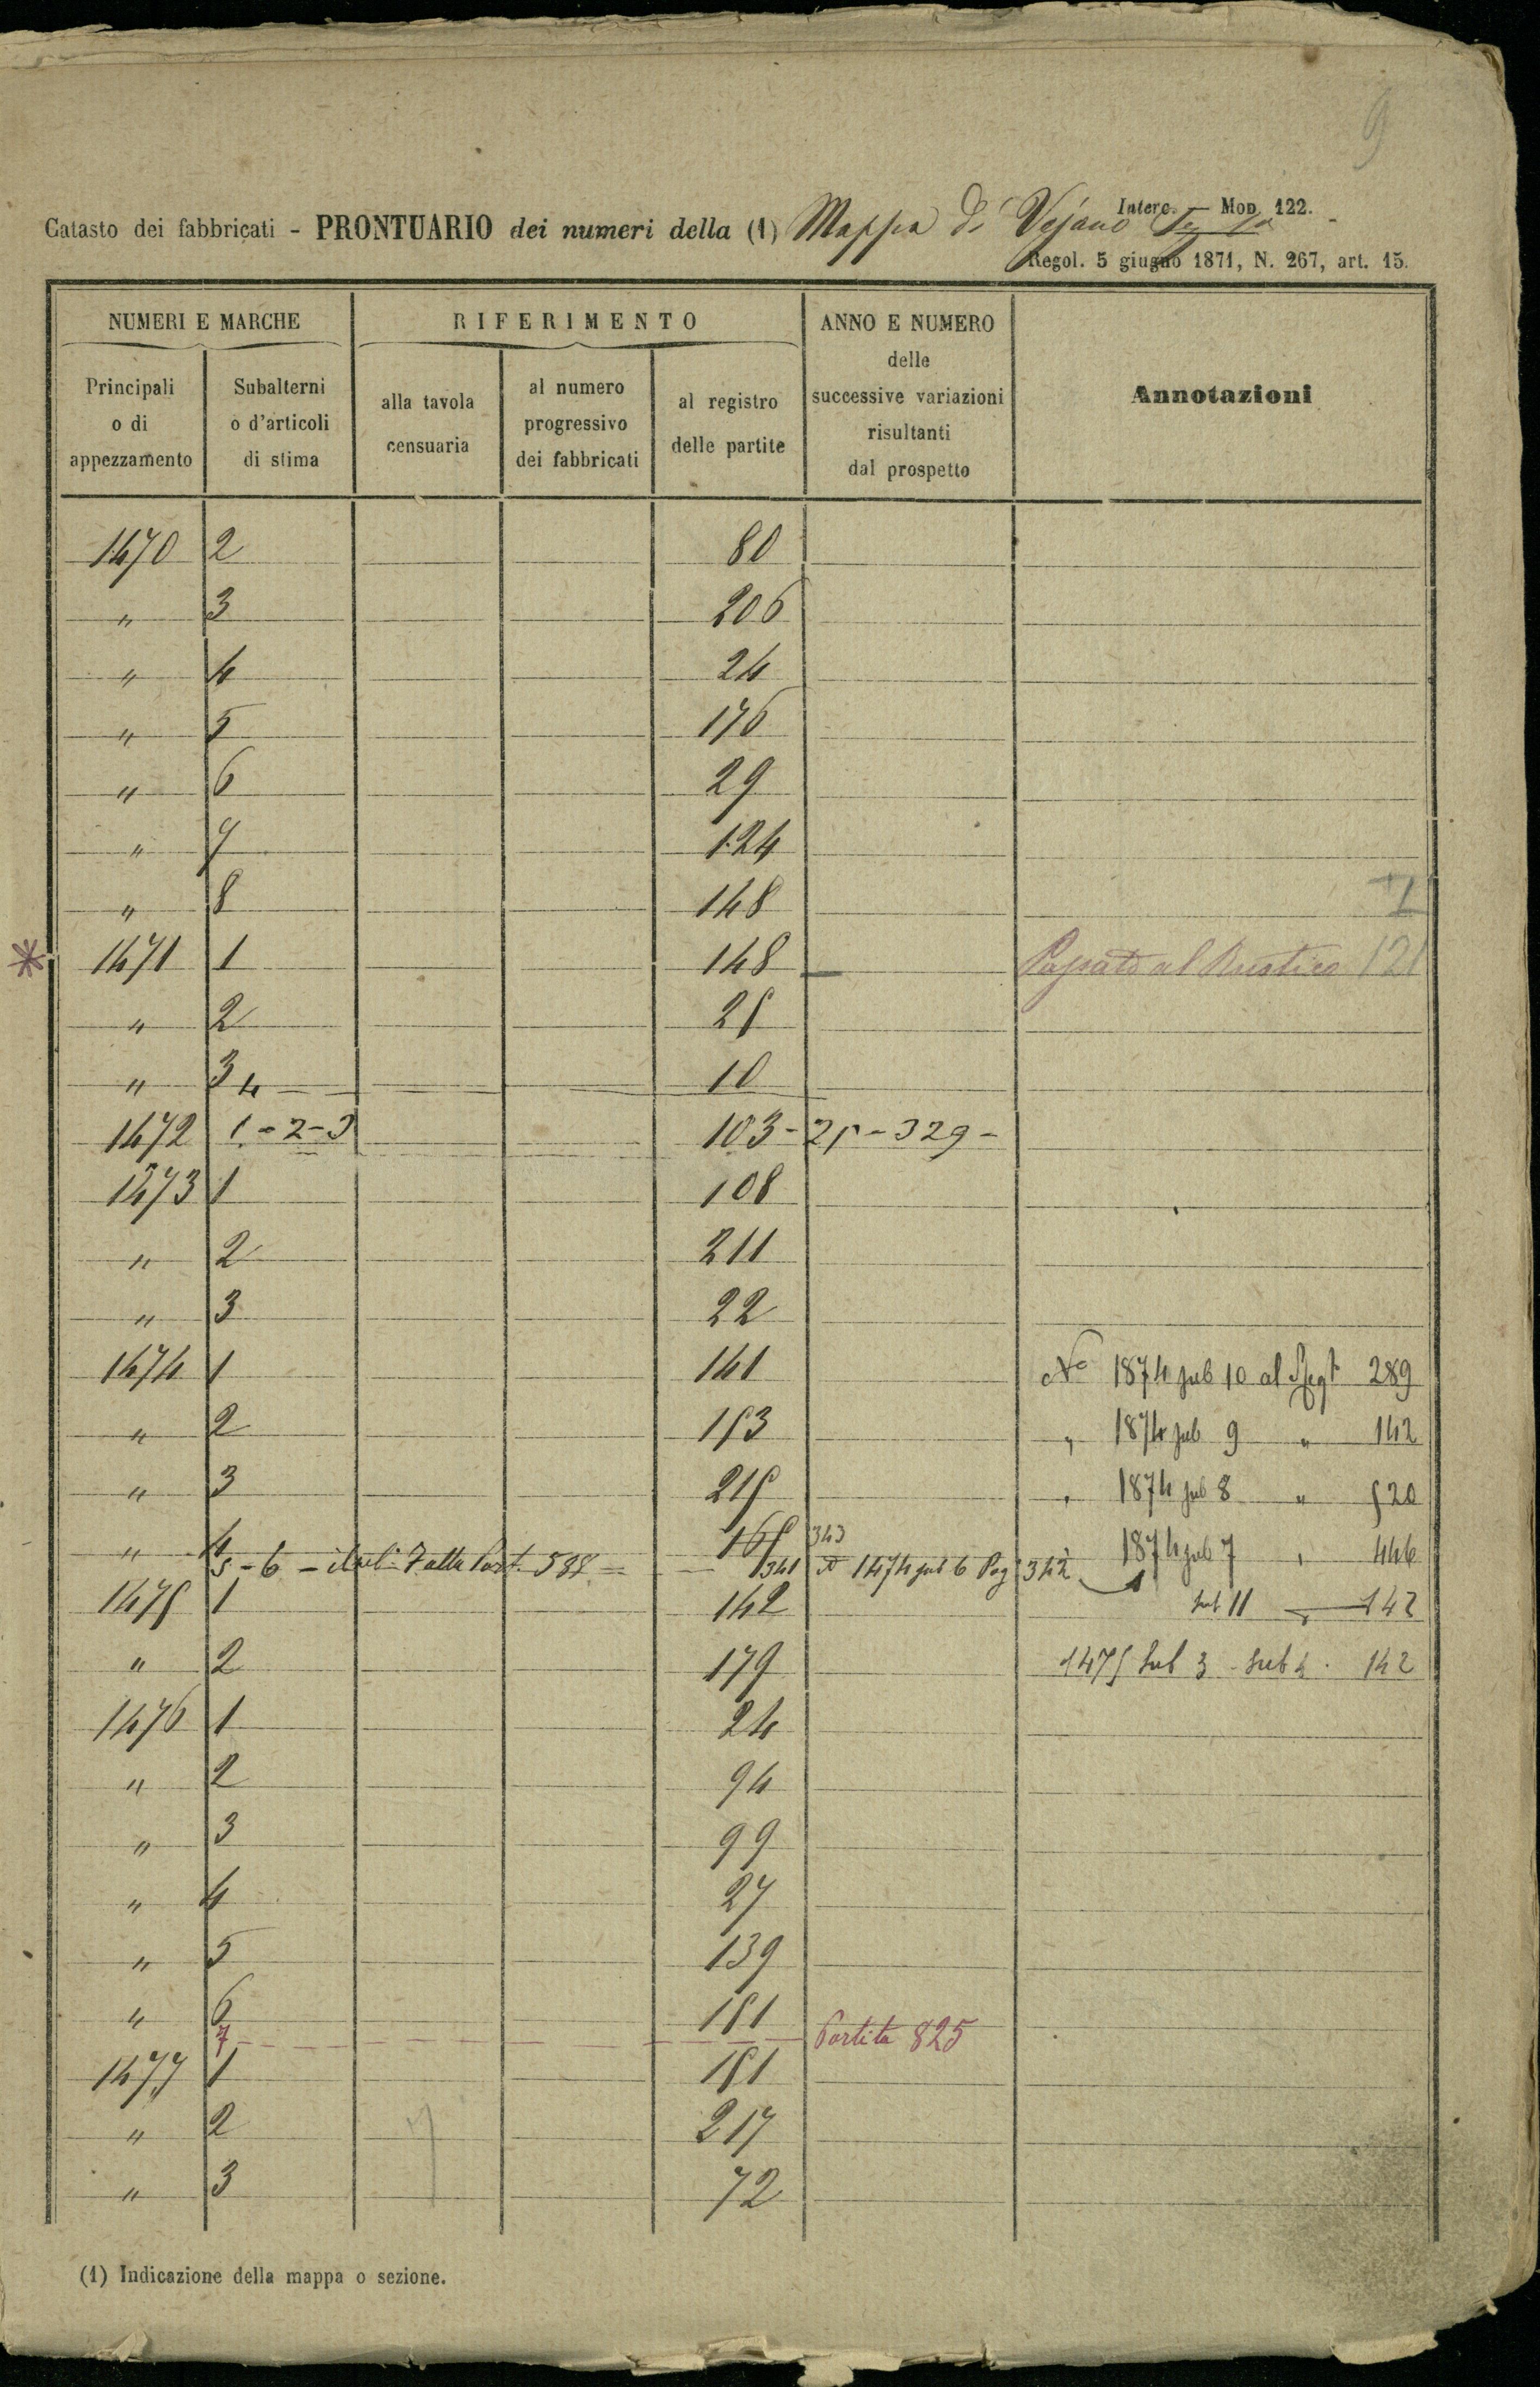 9
Interc. — Mod. 122.
Catasto dei fabbricati - PRONTUARIO dei numeri della (1) Mappa di Vejano
Regol. 5 giugno 1871, N. 267, art. 15.
NUMERI E MARCHE RIFERIMENTO ANNO E NUMERO delle successive variazioni risultanti dal prospetto Annotazioni
Principali o di appezzamento Subalterni o d'articoli di stima alla tavola censuaria al numero progressivo dei fabbricati al registro delle partite
1470 2 80
" 3 206
" 4 24
" 5 176
" 6 29
" 7 124
" 8 148
* 1471 1 148 — Passato al Rustico 121
" 2 25
" 3 4 — — 10
1472 1-2-3 103-25-329-
1473 1 108
" 2 211
" 3 22
1474 1 141 No 1874 sub 10 al 289
" 2 153 " 1874 sub 9 " 142
" 3 215 " 1874 sub 8 " 520
" 4 165 343 1874 sub 7 " 446
5-6 - il sub 7 alla Part. 538 = — 341 N 1474 sub 6 Pag 342
1475 1 142 sub 11 " 142
" 2 179 1475 sub 3 - sub 4 . 142
1476 1 24
" 2 94
" 3 99
" 4 27
" 5 139
" 6 151
7 — — — Partita 825
1477 1 151
" 2 217
" 3 72
(1) Indicazione della mappa o sezione.